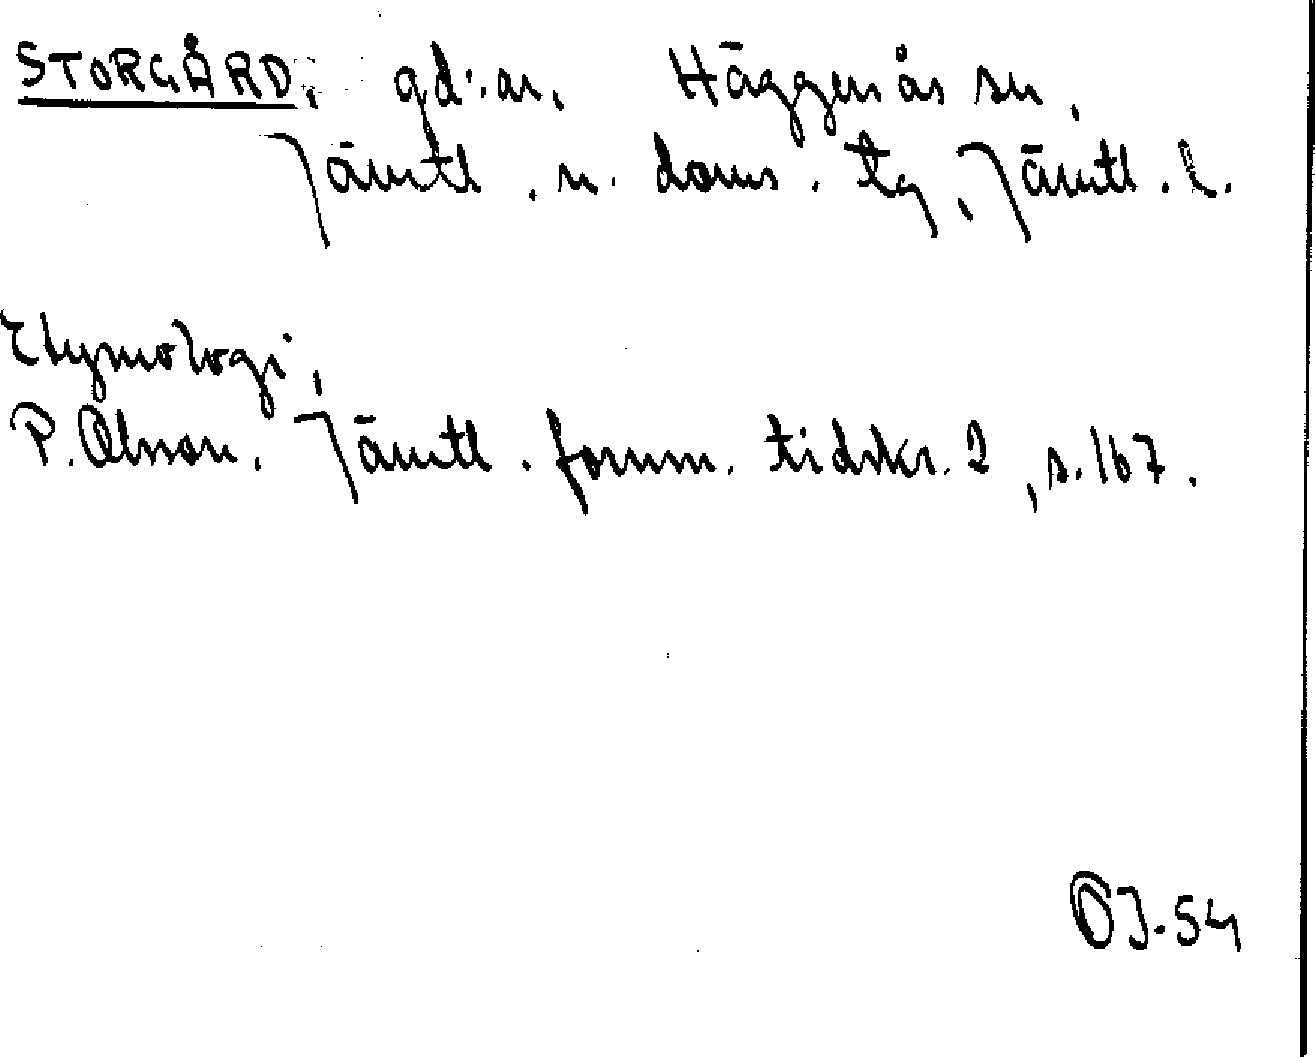 STORGÅRD, gd:ar, Häggenås sn,
Jämtl. n. doms. tg, Jämtl. l.
Etymologi,
P. Olsson. Jämtl. fornm. tidskr. 2, s. 167.
OJ-54